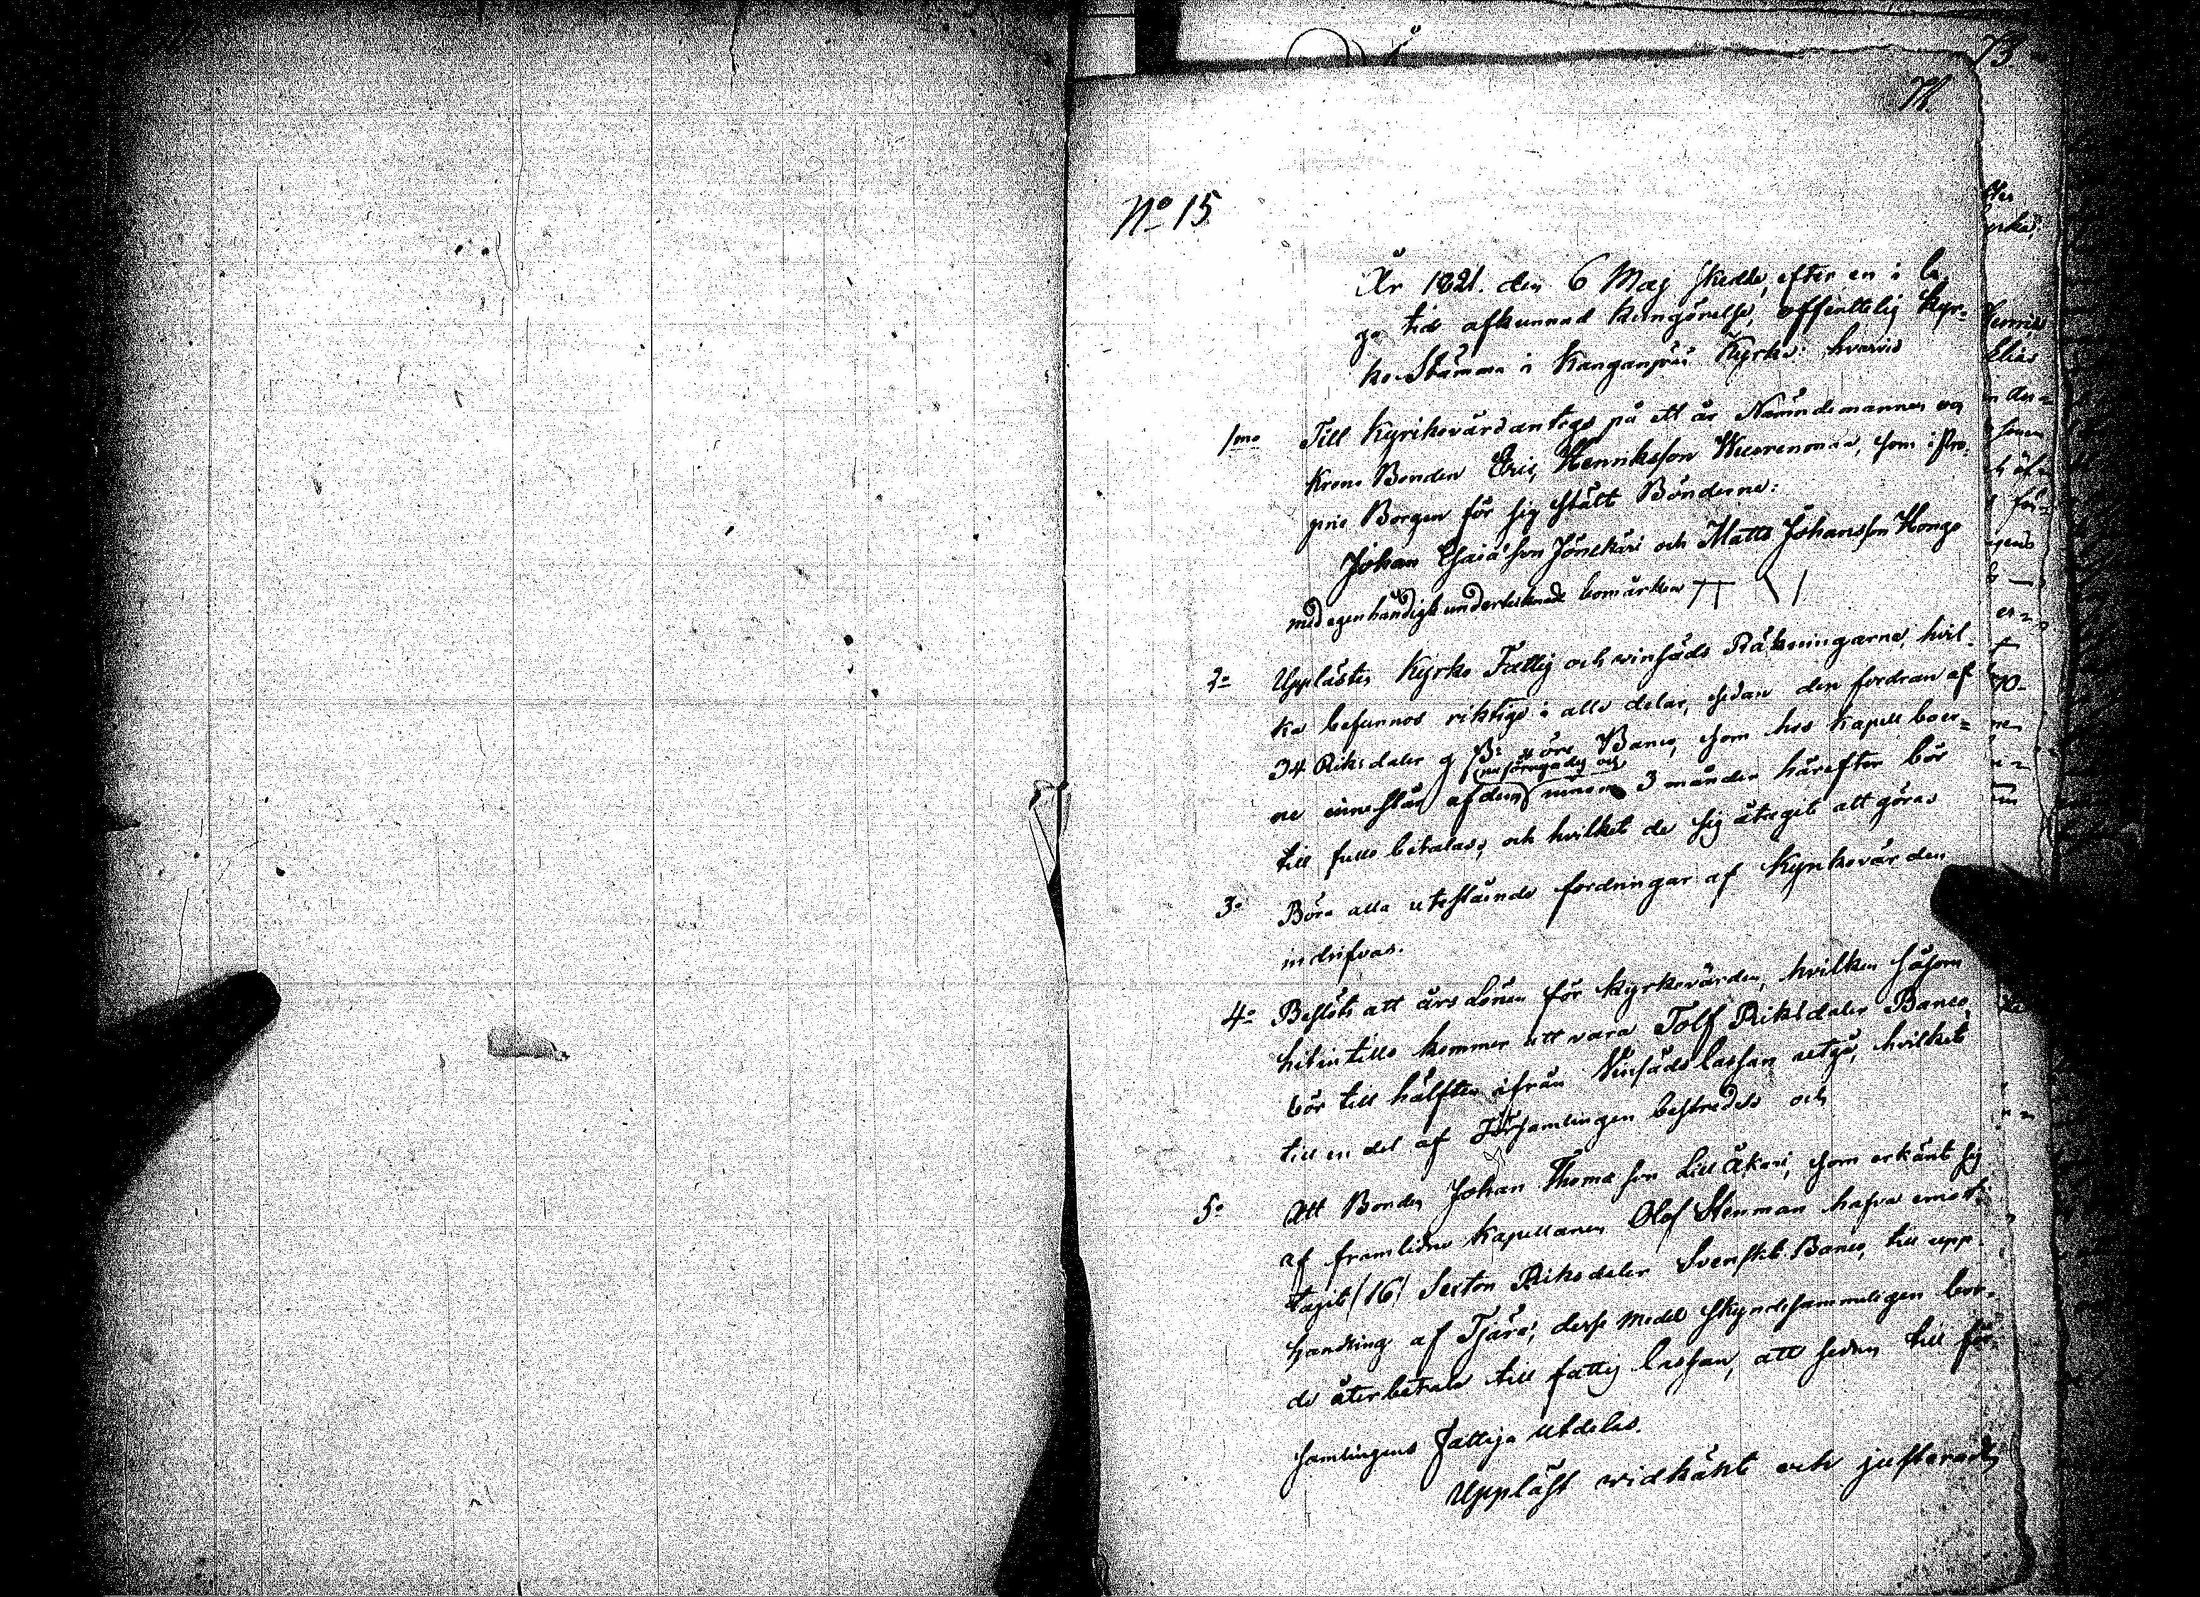 73.
71.
No 15
År 1821. den 6 Maj skedde, efter en i la-
ga tid afkunnad kungörelse, offentelig Kyr=
ko-Stämma i Kangaspää Kyrka: hvarvid
1mo Till Kyrkovärd antogs på ett år Nämndemannen och
Krono Bonden Eric Henriksson Wuorenmaa, som i Pro-
prie Borgen för sig stält Bönderne:
Johan Esaiæson Jönckäri och Matts Johansson Honga
med egenhändigt undertecknade bomärken
2o Upplästes Kyrko Fattig och vinsäds Räkningarne, hvil-
ka befunnos riktiga i alla delar, sedan den fordran af
34 Riksdaler 9 ß: öre Banco, som hos Kapell boer=
ne innestår af dem innom 3 månader härefter bör
till fullo betalas, och hvilket de sig åtagit att göras
3o Böra alla utestående fordringar af Kyrkovärden
indrifvas.
4o Beslöts att års Lönen för Kyrkovärden, hvilken såsom
hitintills kommer att vara Tolf Riksdaler Banco,
bör till hälften ifrån Vinsäds Cassan utgå, hvilket
till en del af Församlingen bestredes och
5o Att Bonden Johan Thomæson Lillåkari, som erkänt sig
af framlidne Kapellanen Olof Stenman hafva emot-
tagit (16) Sexton Riksdaler Svenskt Banco, till upp-
handling af Tjära, desse medel skyndesammeligen bor-
de återbetala till fattig Cassan, att sedan till För-
samlingens Fattiga utdelas.
Uppläst vidkänt och justeradt,